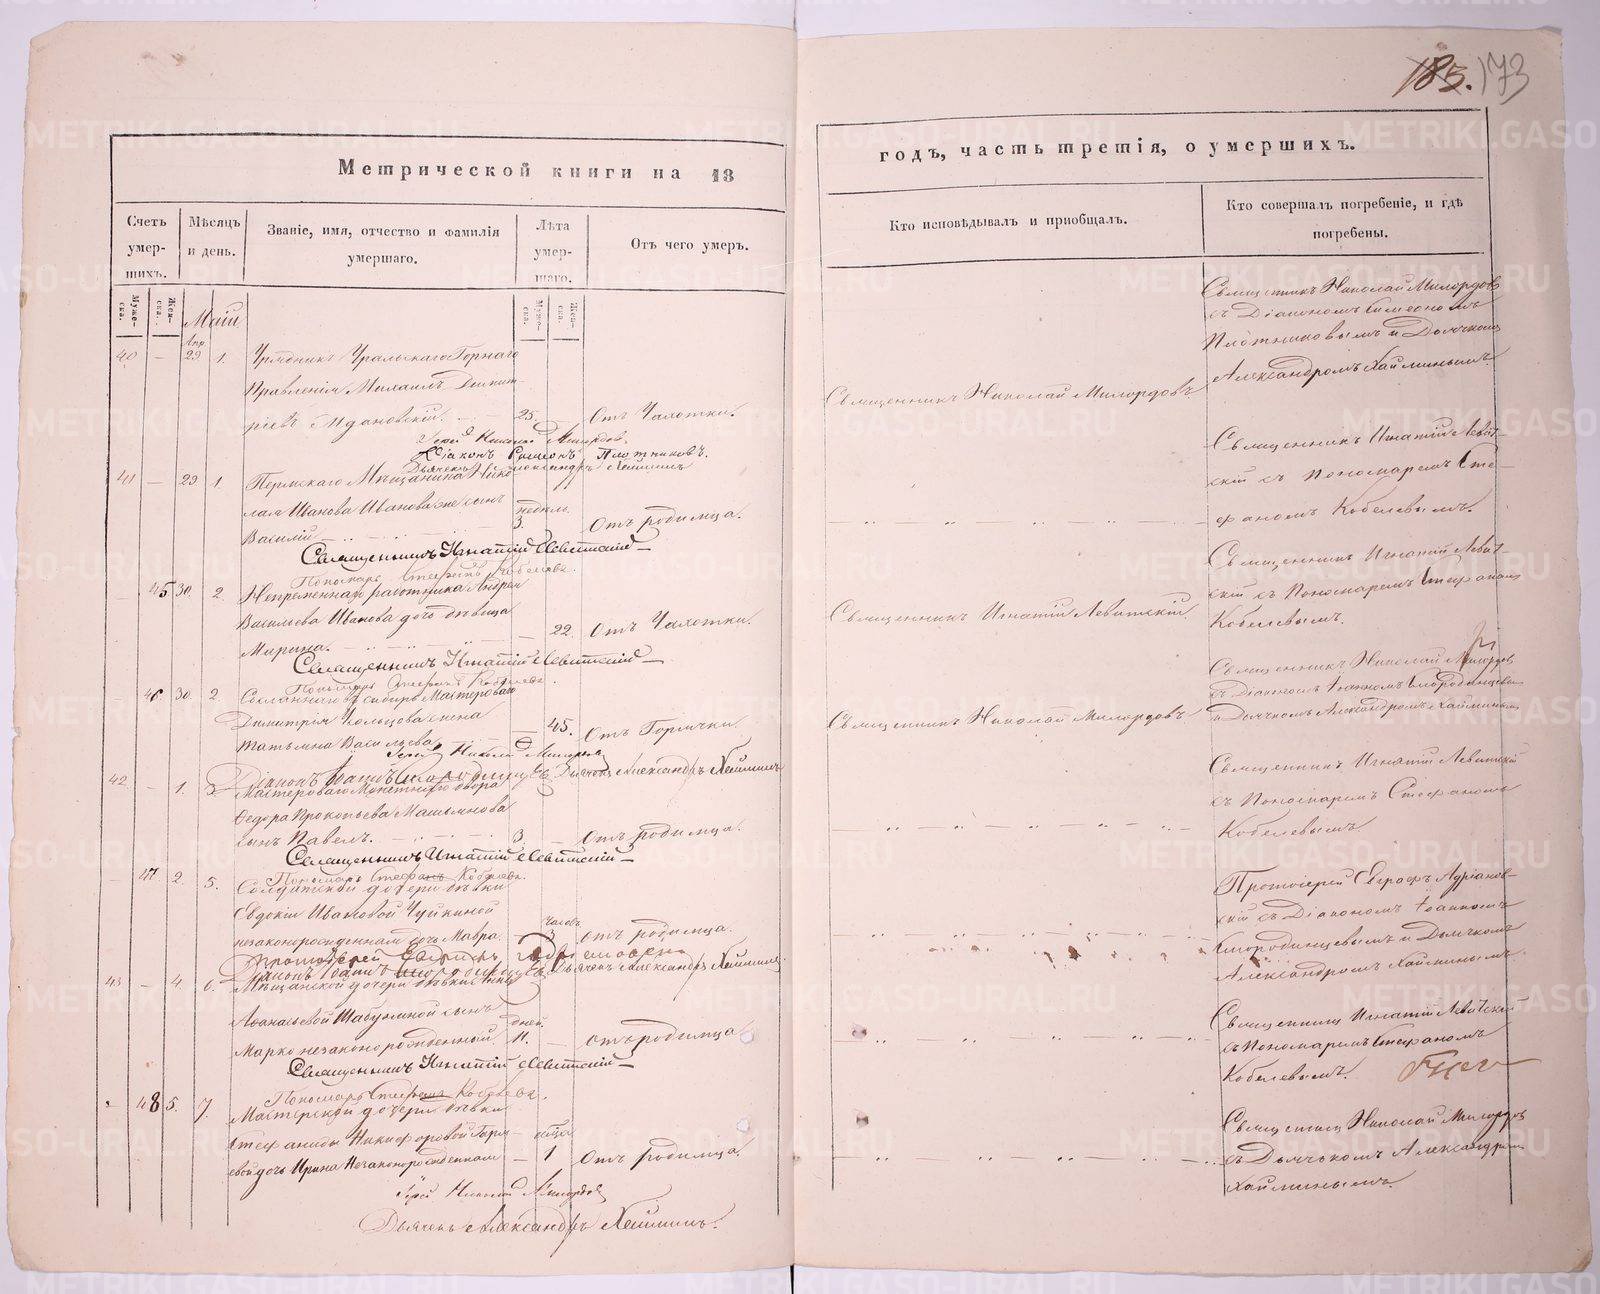 185. 173
Метрической книги на 18
годъ, часть третія, о умершихъ.
Счетъ умер-шихъ.
Мѣсяцъ и день.
Званіе, имя, отчество и фамилія умершаго.
Лѣта умер-шаго.
Отъ чего умеръ.
Кто исповѣдывалъ и приобщалъ.
Кто совершалъ погребеніе, и гдѣ погребены.
Муже-ска.
Жен-ска.
Муже-ска.
Жен-ска.
Маій
Апр.
40 — 29 1. Урядникъ Уральскаго Горнаго
Правленія Михаилъ Димит-
ріевъ 25. — Отъ Чахотки.
Іерей Николай Милордовъ
Діаконъ Симеонъ Плотниковъ.
Дьячекъ Александръ Хайминъ
Священникъ Николай Милордовъ
Священникъ Николай Милордовъ
съ Діакономъ Симеономъ
Плотниковымъ и Дьячкомъ
Александромъ Хайминымъ.
41 — 29 1. Пермскаго Мѣщанина Нико-
лая Иванова Иванова же сынъ недѣль
Василій 3. Отъ родимца.
Священникъ Игнатій Левитскій
Пономарь Стефанъ Кобелевъ.
Священникъ Игнатій Левит-
скій съ Пономаремъ Сте-
фаномъ Кобелевымъ.
— 45 30. 2 Непременнаго работника Андрея
Васильева Иванова дочь дѣвица
Марина. — 22. Отъ Чахотки.
Священникъ Игнатій Левитскій
Пономарь Стефанъ Кобелевъ.
Священникъ Игнатій Левитскій
Священникъ Игнатій Левит-
скій съ Пономаремъ Стефаномъ
Кобелевымъ.
— 46 30. 2 Сосланнаго въ Сибирь Мастероваго
Димитрія Кольцова жена
Татьяна Васильева — 45. Отъ Горячки
Іерей Николай Милордовъ
Діаконъ Іоаннъ Смородинцевъ Дьячекъ Александръ Хайминъ
Священникъ Николай Милордовъ
Священникъ Николай Милордовъ
съ Діакономъ Іоанномъ Смородинцевымъ
и Дьячкомъ Александромъ Хайминымъ
42 — 1. 3 Мастероваго Монетнаго двора
Федора Прокопьева Мальянова
сынъ Павелъ. 3. Отъ родимца.
Священникъ Игнатій Левитскій
Пономарь Стефанъ Кобелевъ.
Священникъ Игнатій Левитскій
съ Пономаремъ Стефаномъ
Кобелевымъ.
— 47 2. 5. Солдатской дочери дѣвки
Евдокіи Ивановой Чуйкиной часовъ
незаконорожденная дочь Мавра. — 3 отъ родимца.
Протоіерей
Діаконъ Іоаннъ Смородинцевъ Дьячекъ Александръ Хайминъ
Протоіерей Евграфъ Адріанов-
скій съ Діакономъ Іоанномъ
Смородинцевымъ и Дьячкомъ
Александромъ Хайминымъ.
43 — 4 6. Мѣщанской дочери дѣвки Анны
Афанасьевой сынъ дней
Марко незаконорожденный. 11. — отъ родимца
Священникъ Игнатій Левитскій
Пономарь Стефанъ Кобелевъ.
Священникъ Игнатій Левитскій
съ Пономаремъ Стефаномъ
Кобелевымъ.
— 48 5. 7. Мастерской дочери дѣвки
Стефаниды Никифоровой
дочь Ирина Незаконорожденная — 1 Отъ родимца.
Іерей Николай Милордовъ
Дьячекъ Александръ Хайминъ.
Священникъ Николай Милордовъ
съ Дьячкомъ Александромъ
Хайминымъ.
METRIKI.GASO-URAL.RU